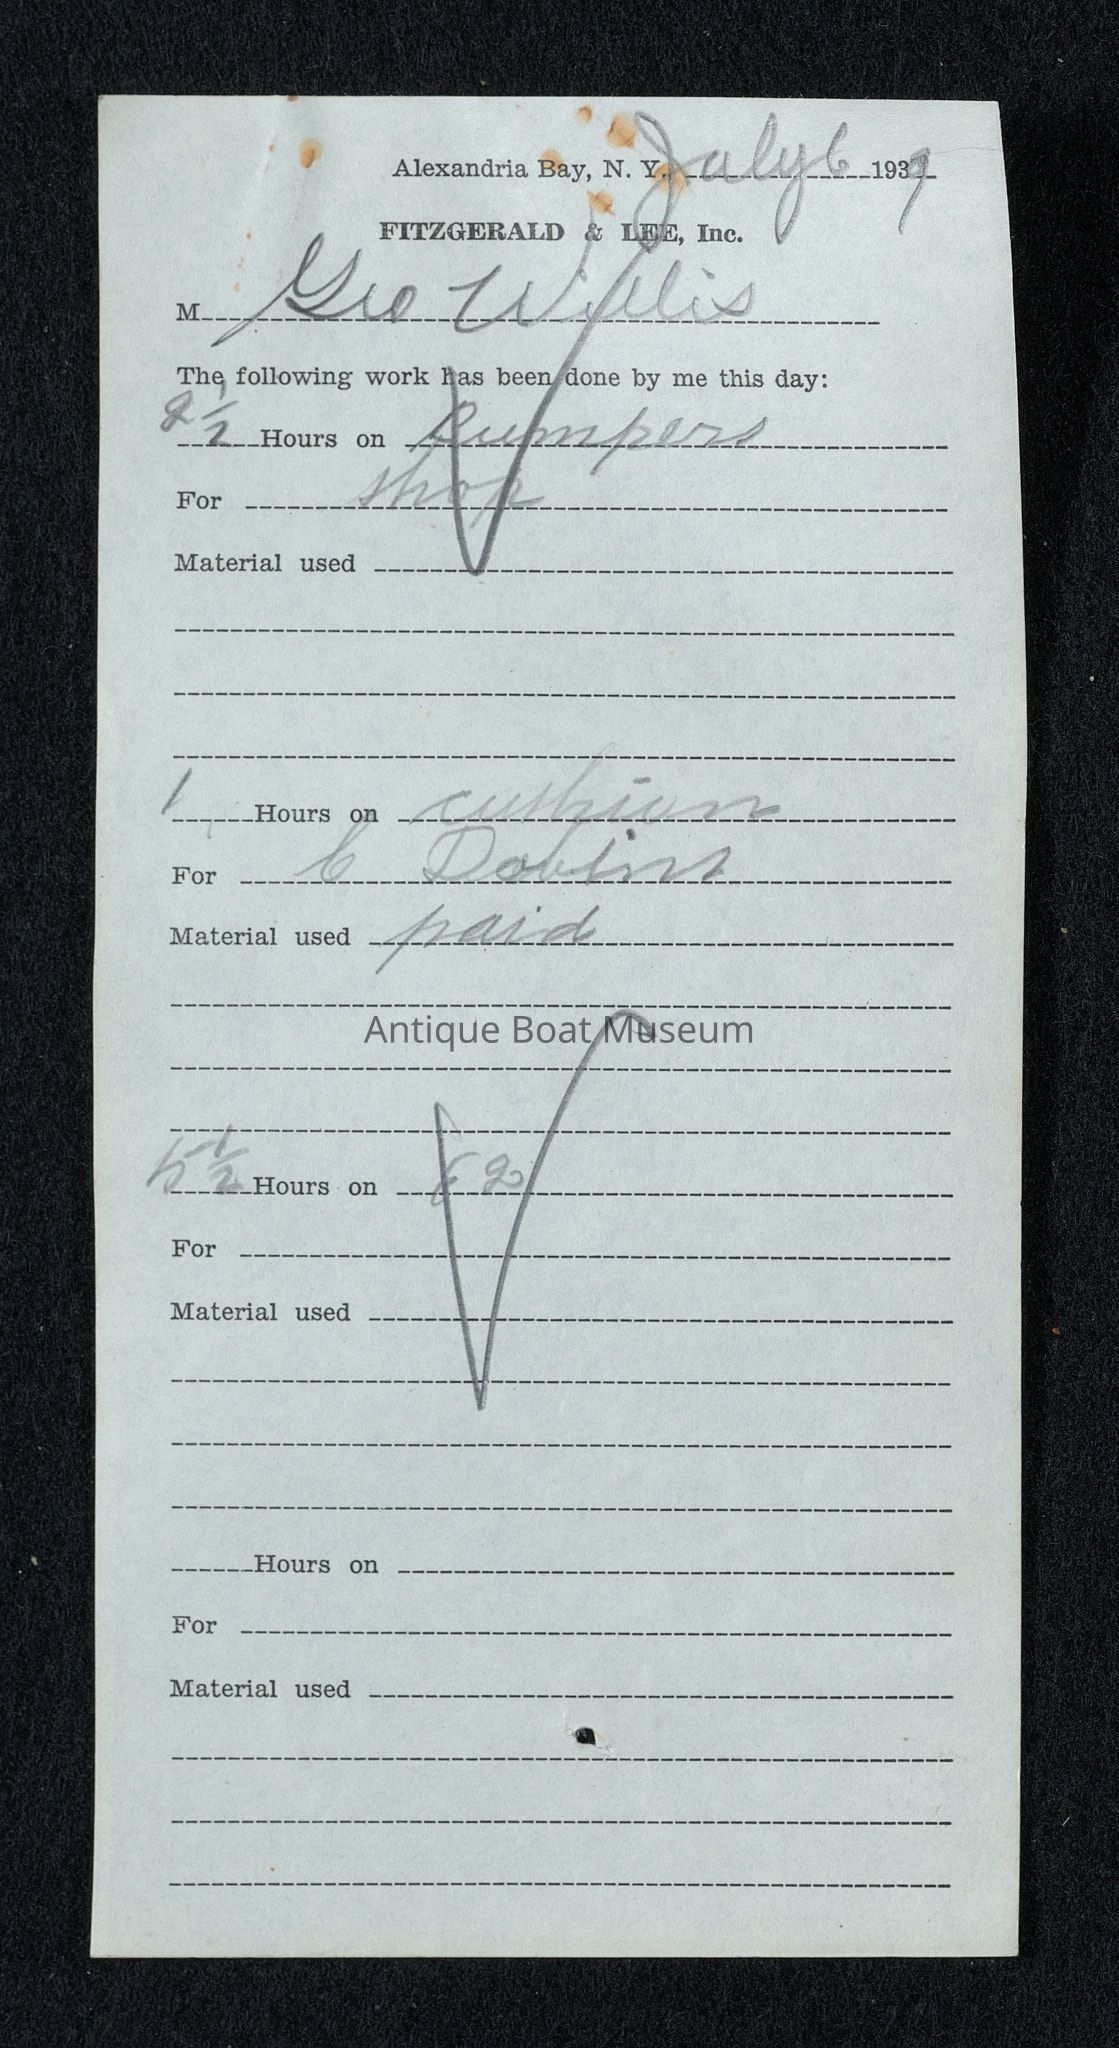 Alexandria Bay, N. Y. July 6 1939
FITZGERALD & LEE, Inc.
M Geo Willis
The following work has been done by me this day:
2 1/2 Hours on Bumpers
For shop
Material used
1 Hours on cushion
For C
Material used paid
Antique Boat Museum
5 1/2 Hours on
For
Material used
Hours on
For
Material used